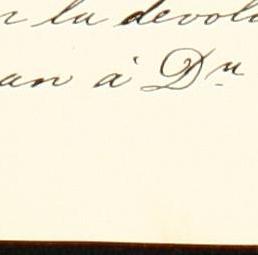 la devolu
an á Dn